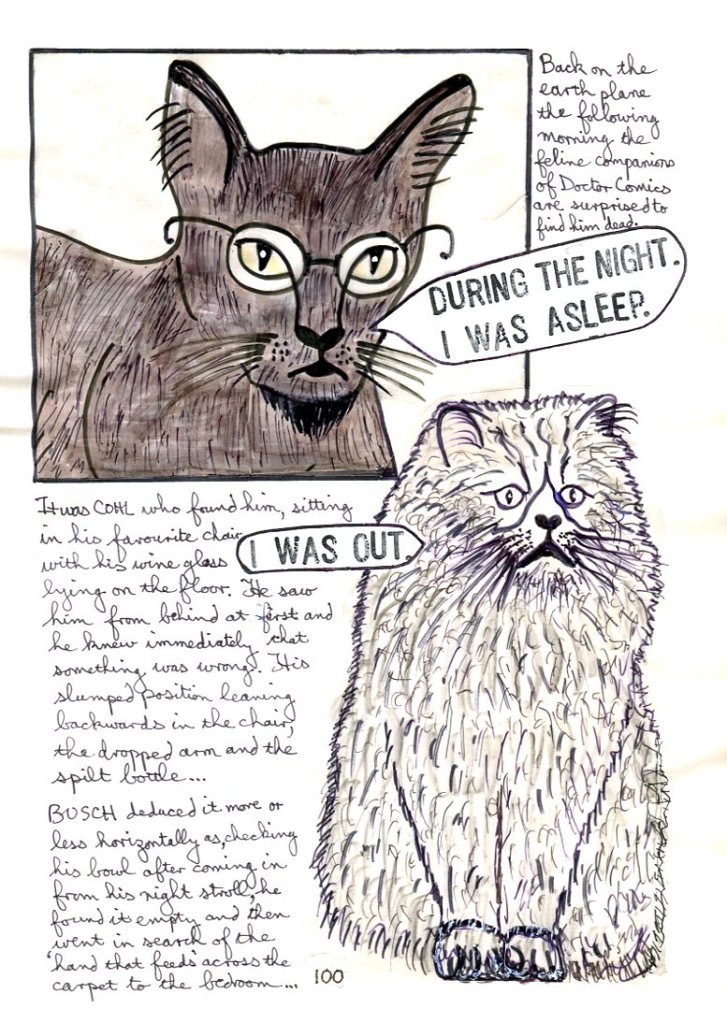 Back on the
earth plane
the following
morning the
feline companions
of Doctor Comics
are surprised to
find him dead.
DURING THE NIGHT.
I WAS ASLEEP.
It was COHL who found him, sitting
in his favourite chair
with his wine glass
lying on the floor. He saw
him from behind at first and
he knew immediately that
something was wrong. His
slumped position leaning
backwards in the chair,
the dropped arm and the
spilt bottle...
I WAS OUT.
BUSCH deduced it more or
less horizontally as, checking
his bowl after coming in
from his night stroll, he
found it empty and then
went in search of the
'hand that feeds' across the
carpet to the bedroom...
100